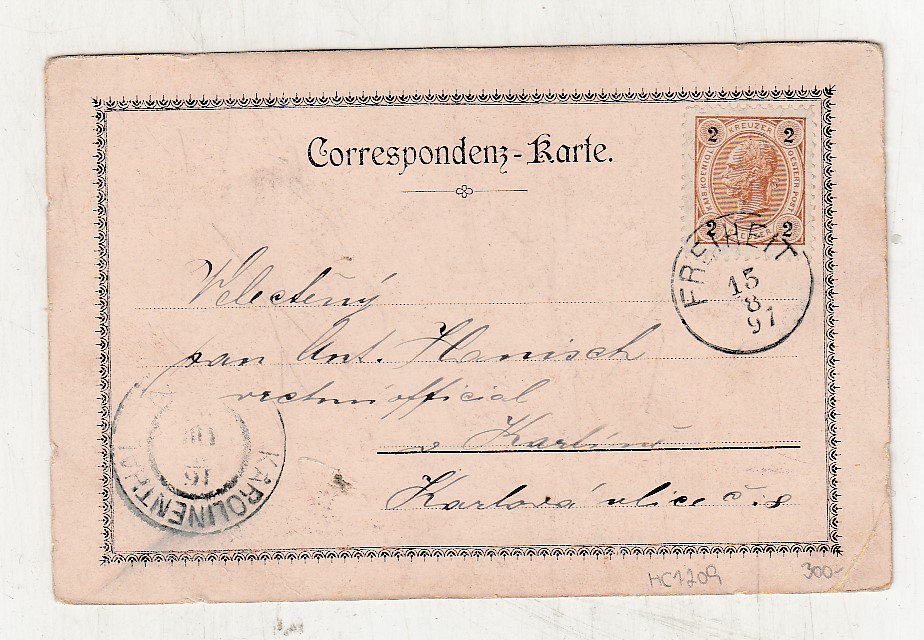 Correspondenz-Karte.
2 KREUZER 2
KAIS. KOENIGL. OESTERR. POST
2 2
FREIHEIT
15
8
97
Velectěný
pan Ant. Hanisch
vrchní official
v Karlíně
Karlova ulice č. 8
KAROLINENTH
97
HC1209
300-